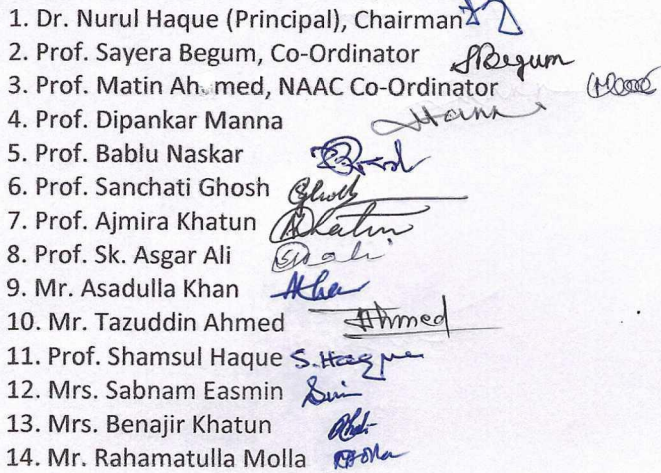 1. Dr. Nurul Haque (Principal), Chairman
2. Prof. Sayera Begum, Co-Ordinator SBegum
3. Prof. Matin Ah. med, NAAC Co-Ordinator
4. Prof. Dipankar Manna
5. Prof. Bablu Naskar
6. Prof. Sanchati Ghosh Ghosh
7. Prof. Ajmira Khatun AKhatun
8. Prof. Sk. Asgar Ali
9. Mr. Asadulla Khan
10. Mr. Tazuddin Ahmed Ahmed
11. Prof. Shamsul Haque S. Haque
12. Mrs. Sabnam Easmin
13. Mrs. Benajir Khatun
14. Mr. Rahamatulla Molla Molla